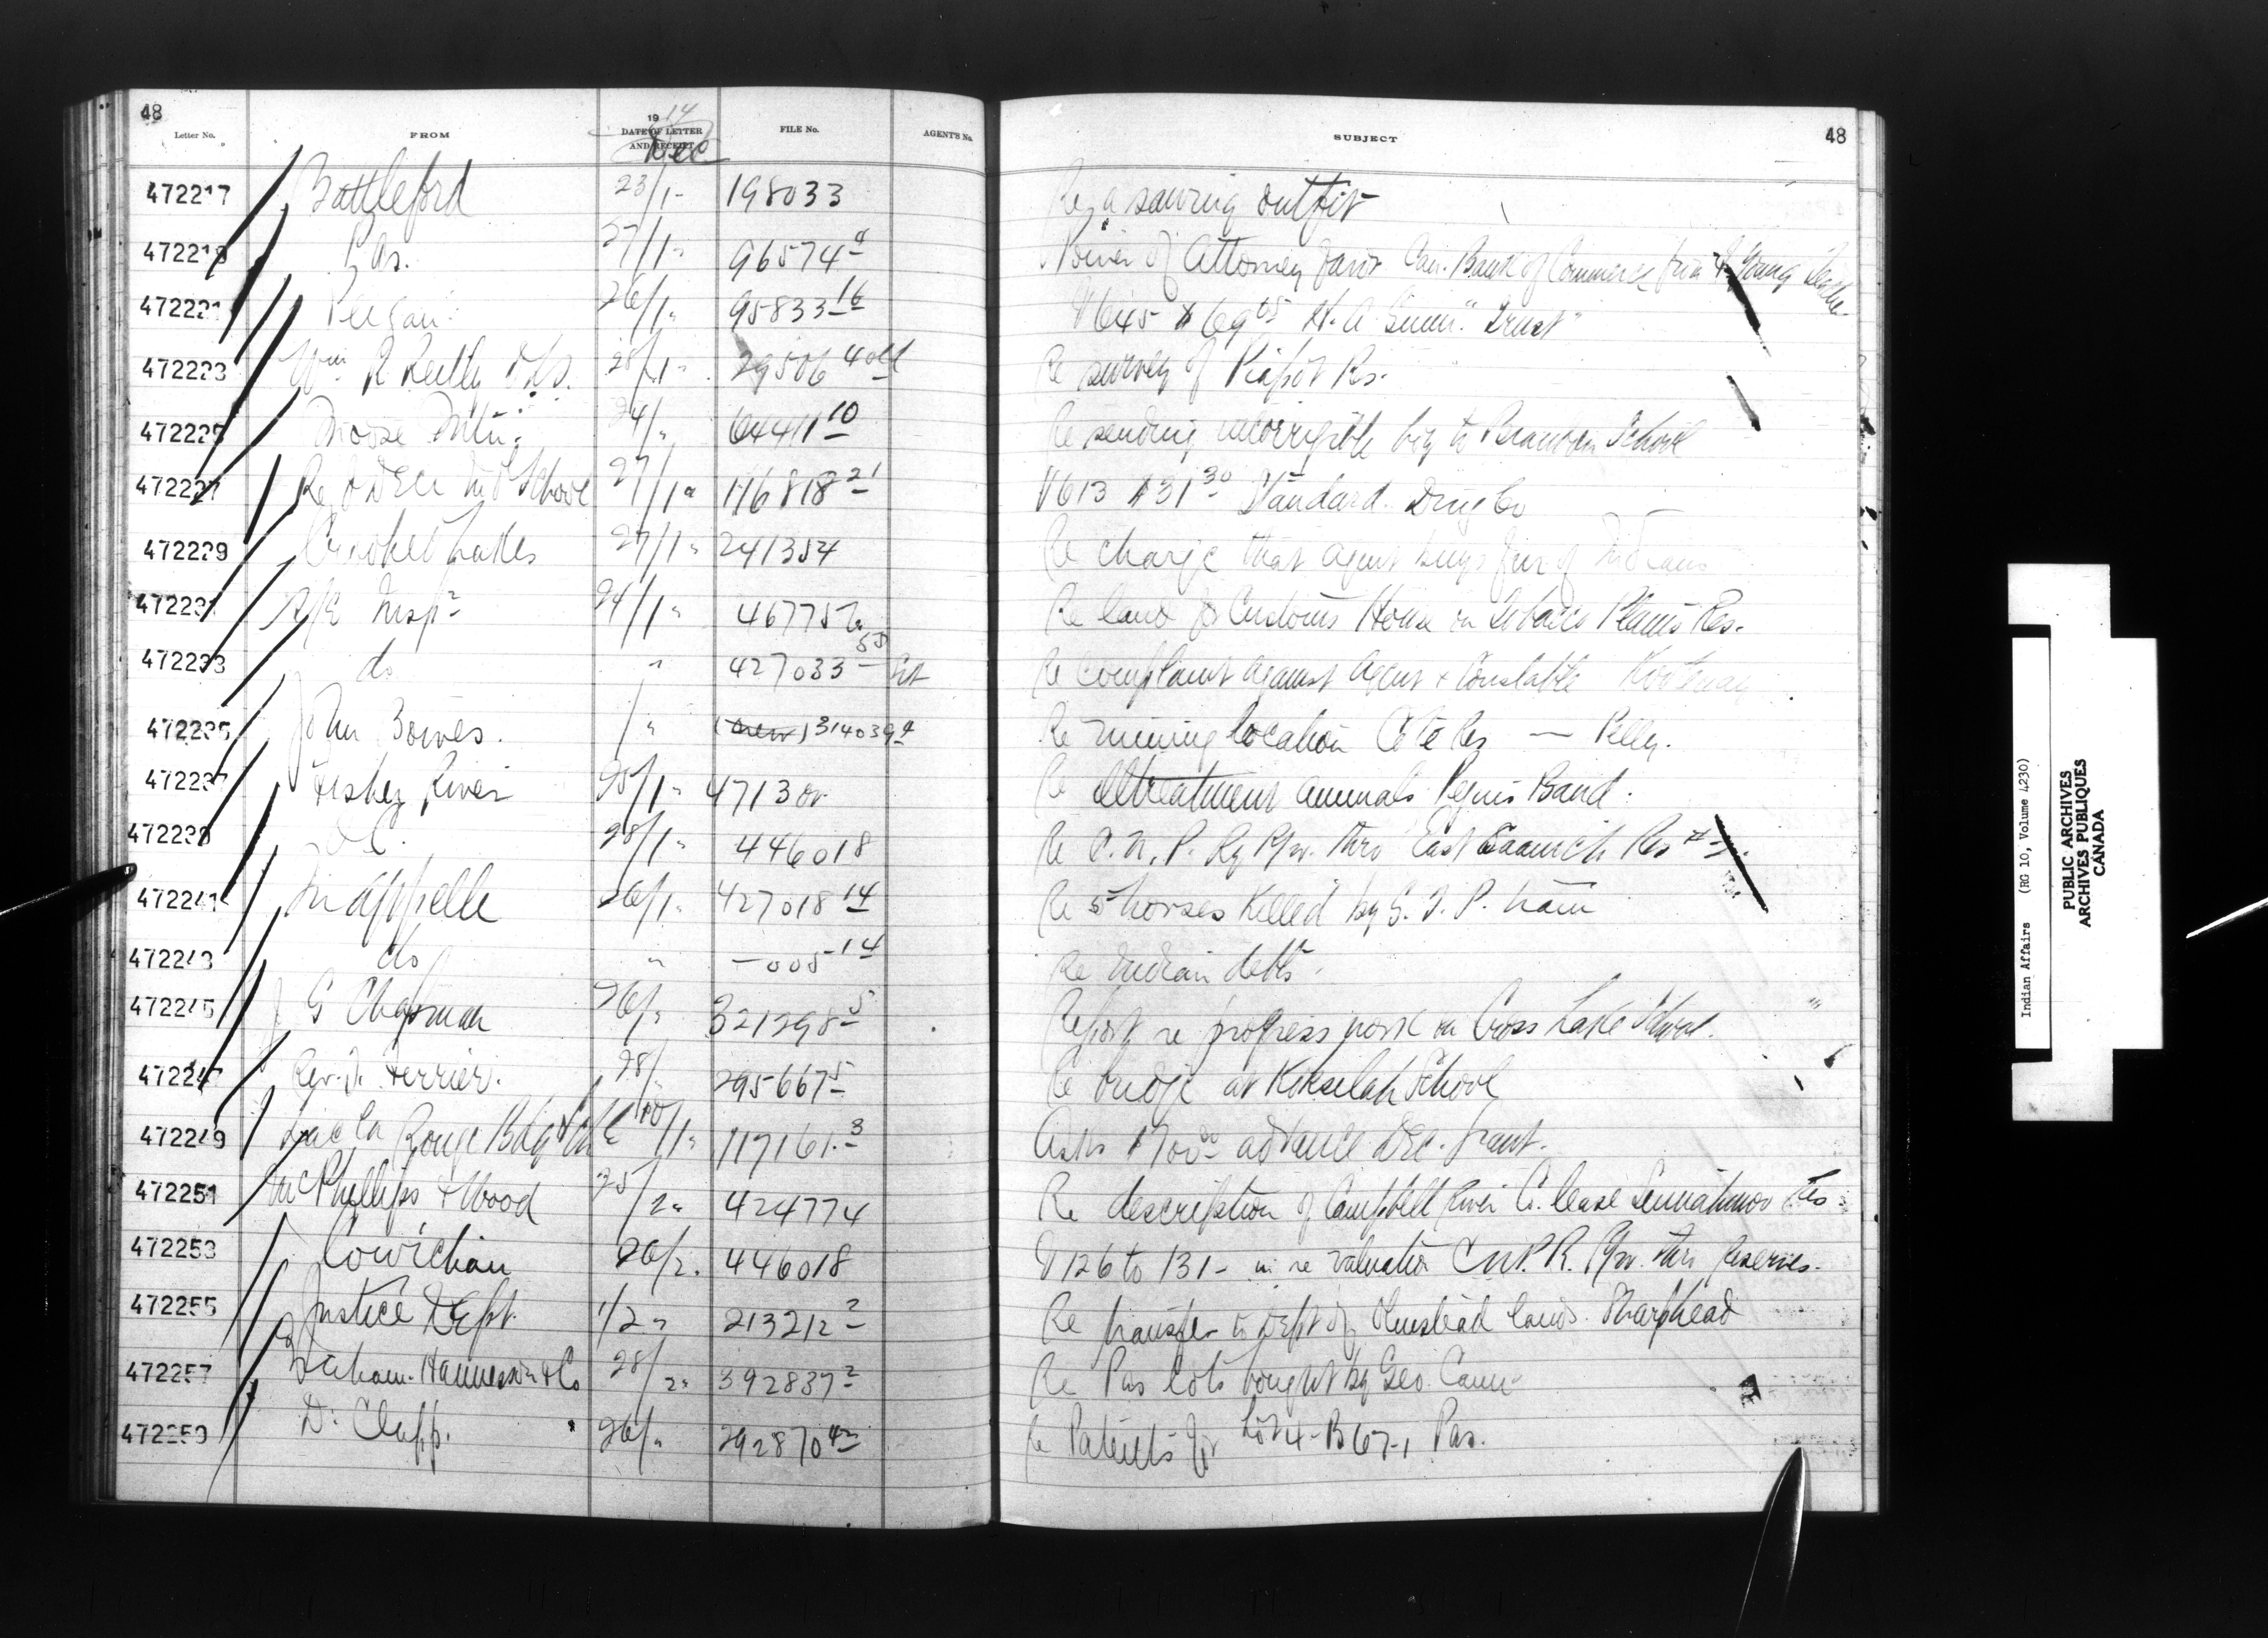 48
Letter No. FROM 1914 DATE OF LETTER AND RECEIPT Dec FILE No. AGENT'S No. SUBJECT 48
472217 Battleford 23/1 - 198033 Re a sawing outfit
472219 Pas. 27/1 " 96574 4 Power of Attorney favor Can. Bank of Commerce from Young
472221 Peigan 26/1 " 95833 16 V645 $69 65 H. A. "Trust"
472223 Wm R Reilly DLS. 28/1 " 29506 4 old Re survey of Piapot Rs.
472225 Moose Mtn. 24/ " 64411 10 Re sending incorrigible boy to Brandon School
472227 Red Deer Ind School 27/1 " 116818 21 V613 $31 30 Standard Drug Co
472229 Crooked Lakes 27/1 " 241354 Re charge that agent buys fur of Indians
472231 Insp 24/1 " 467757 Re land for Customs House on Tobacco Plains Res.
472233 do " 427033 58 Re complaint against Agent + Constable Kootenay
472235 John Bowes. / " (new) 314039 4 Re mining location Cote Res — Pelly.
472237 Fisher River 25/1 " 471301 Re illtreatment animals Peguis Band.
472239 28/1 " 446018 Re C. N. P. Ry R/w. thro East Saanich Res #
472241 Qu'Appelle 26/1 " 427018 14 Re 5 horses killed by G. T. P. train
472243 do " —005 14 Re Indian debts.
472245 J G Chapman 26/ " 321298 5 Report re progress work on Cross Lake School.
472247 Rev. Dr. Ferrier. 28/ " 295667 5 Re bridge at Koksilah School
472249 Lac La Ronge Bdg School 10/1 " 117161 3 Asks $700 00 advance Dec. grant.
472251 McPhillips + Wood 25/2 " 424774 Re description of Campbell River Co. lease Res
472253 Cowichan 26/2. 446018 V126 to 131 - in re valuation C N P. R. R/w. thro Reserves.
472255 Justice Dept. 1/2 " 213212 2 Re transfer to Dept of Olmstead lands. Sharphead
472257 Graham. Hannesson & Co 28/2 " 392837 2 Re Pas lots bought by Geo. Cann
472259 Dr Clapp. 26/ " 292870 42 Re Patents for Lot 4 - B 67-1 Pas.
Indian Affairs (RG 10, Volume 4230)
PUBLIC ARCHIVES
ARCHIVES PUBLIQUES
CANADA